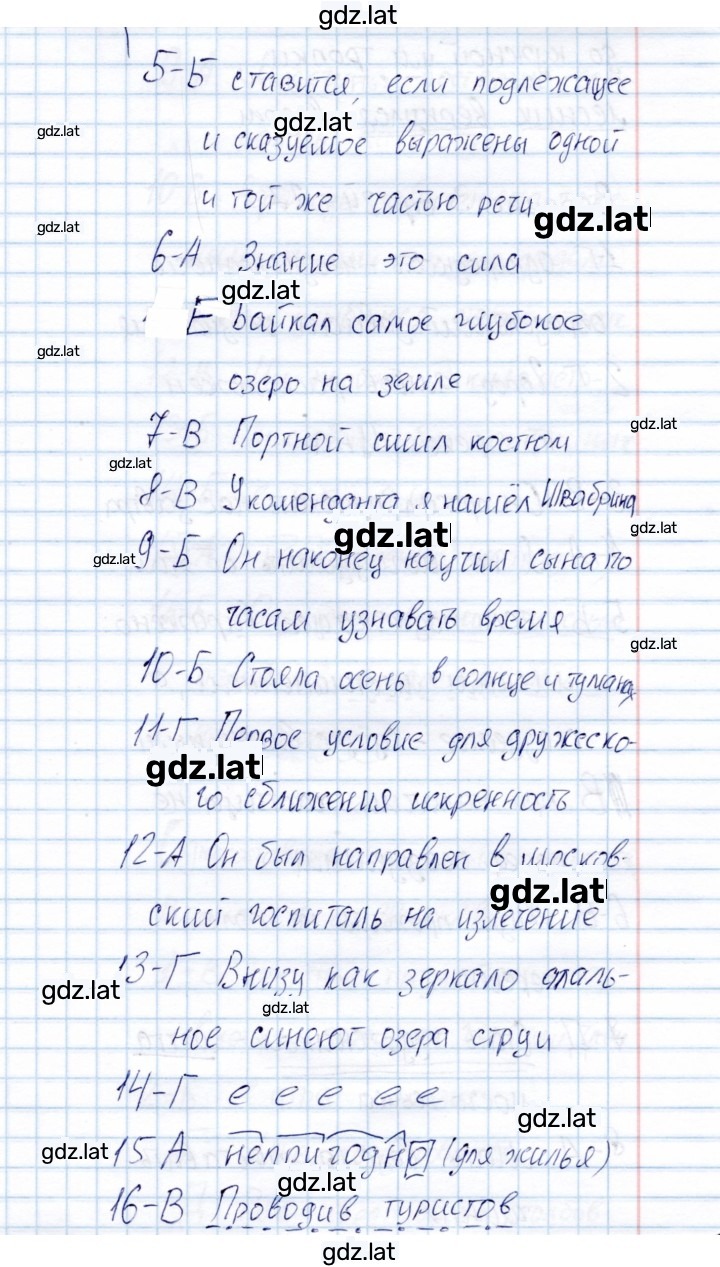 gdz.lat
5-Б ставится, если подлежащее
gdz.lat
gdz.lat
и сказуемое выражены одной
и той же частью речи
gdz.lat
gdz.lat
6-А Знание это сила
gdz.lat
Е Байкал самое глубокое
gdz.lat
озеро на земле
7-В Портной сшил костюм
gdz.lat
gdz.lat
8-В У коменданта я нашёл Швабрина
gdz.lat
gdz.lat
gdz.lat
9-Б Он наконец научил сына по
часам узнавать время
gdz.lat
10-Б Стояла осень в солнце и туманах
11-Г Первое условие для дружеско-
gdz.lat
го сближения искренность
12-А Он был направлен в москов-
gdz.lat
ский госпиталь на излечение
13-Г Внизу как зеркало сталь-
gdz.lat
gdz.lat
ное синеют озера струи
14-Г е е е е е
gdz.lat
15 А непригодно (для жилья)
gdz.lat
gdz.lat
16-В Проводив туристов
gdz.lat